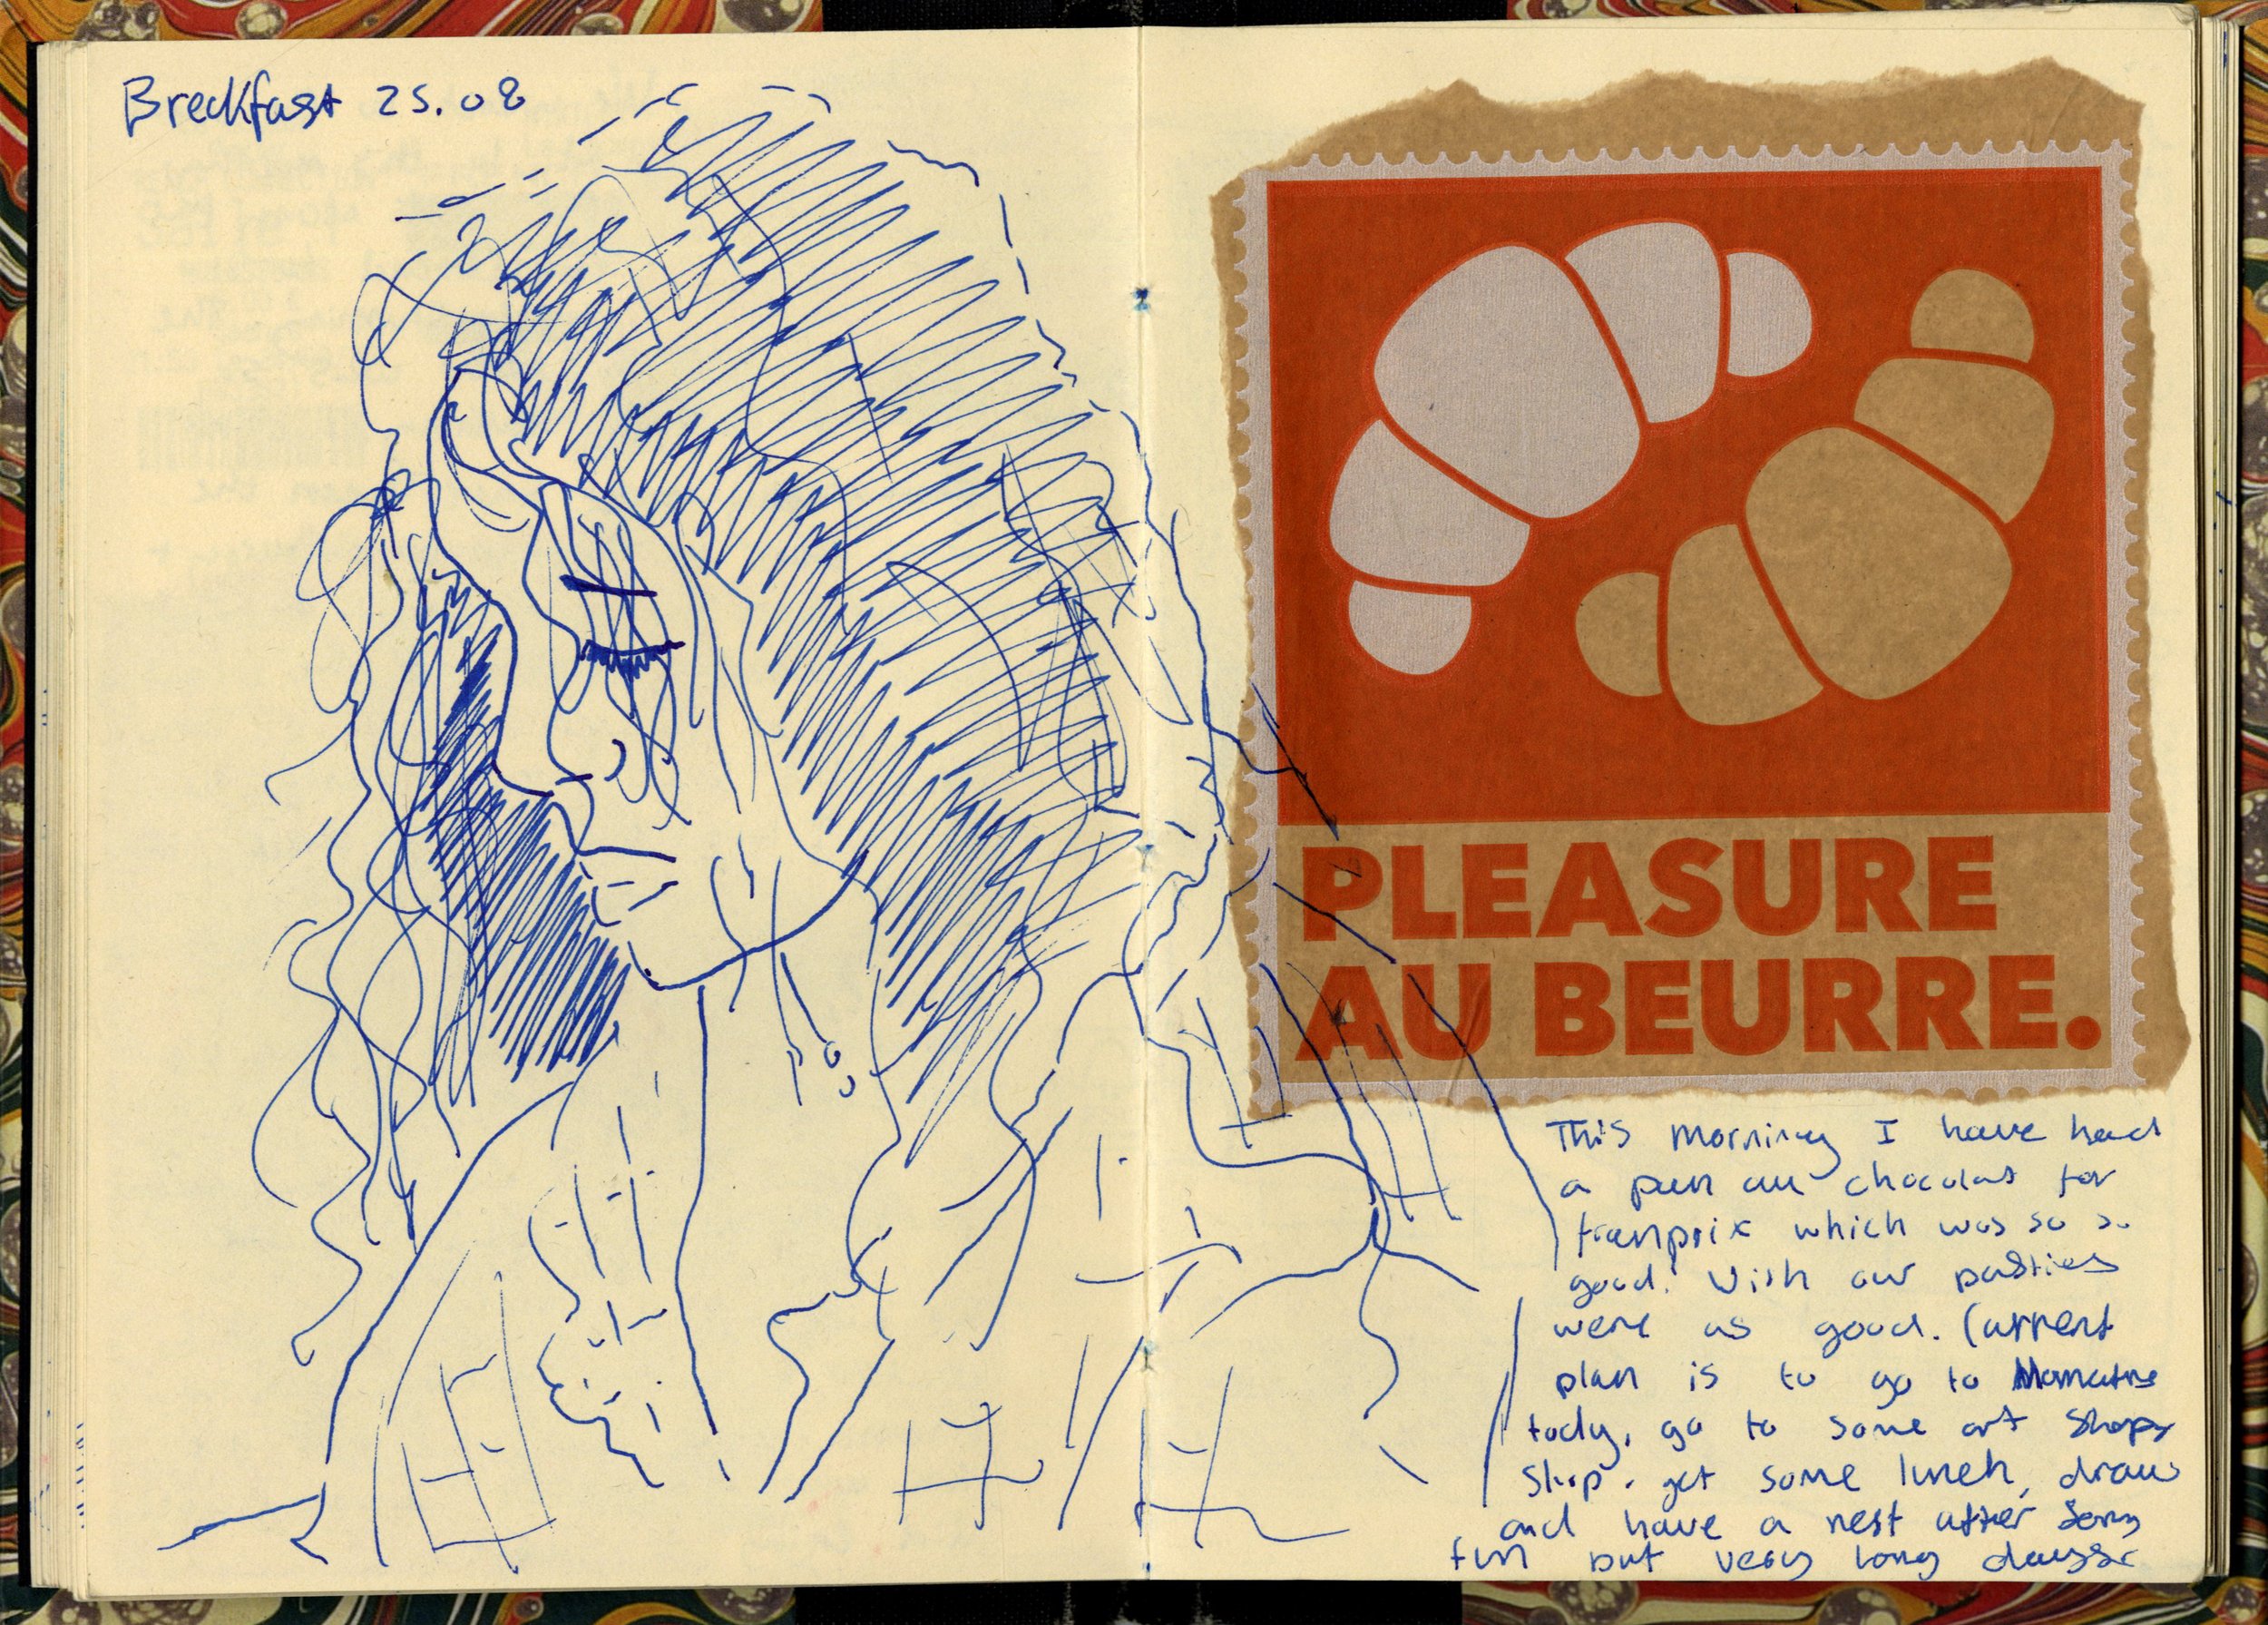 Breckfast 25.08
PLEASURE
AU BEURRE.
This morning I have had
a pan au chocolat for
franprix which was so so
good! With our pastries
were as good. Current
plan is to go to
tody, go to some art shops
Shop. get some lunch, draw
and have a rest after
fun but very long days